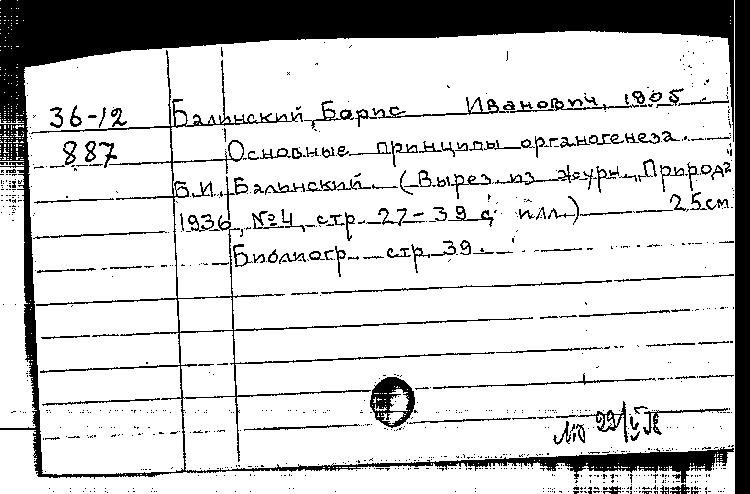 36-12 Балинский, Борис Иванович, 1905
887 Основные принципы органогенеза.
Б.И. Балинский. (Вырез. из журн. „Природа"
1936, №4, стр. 27-39 с илл.) 25см
Библиогр. стр. 39.